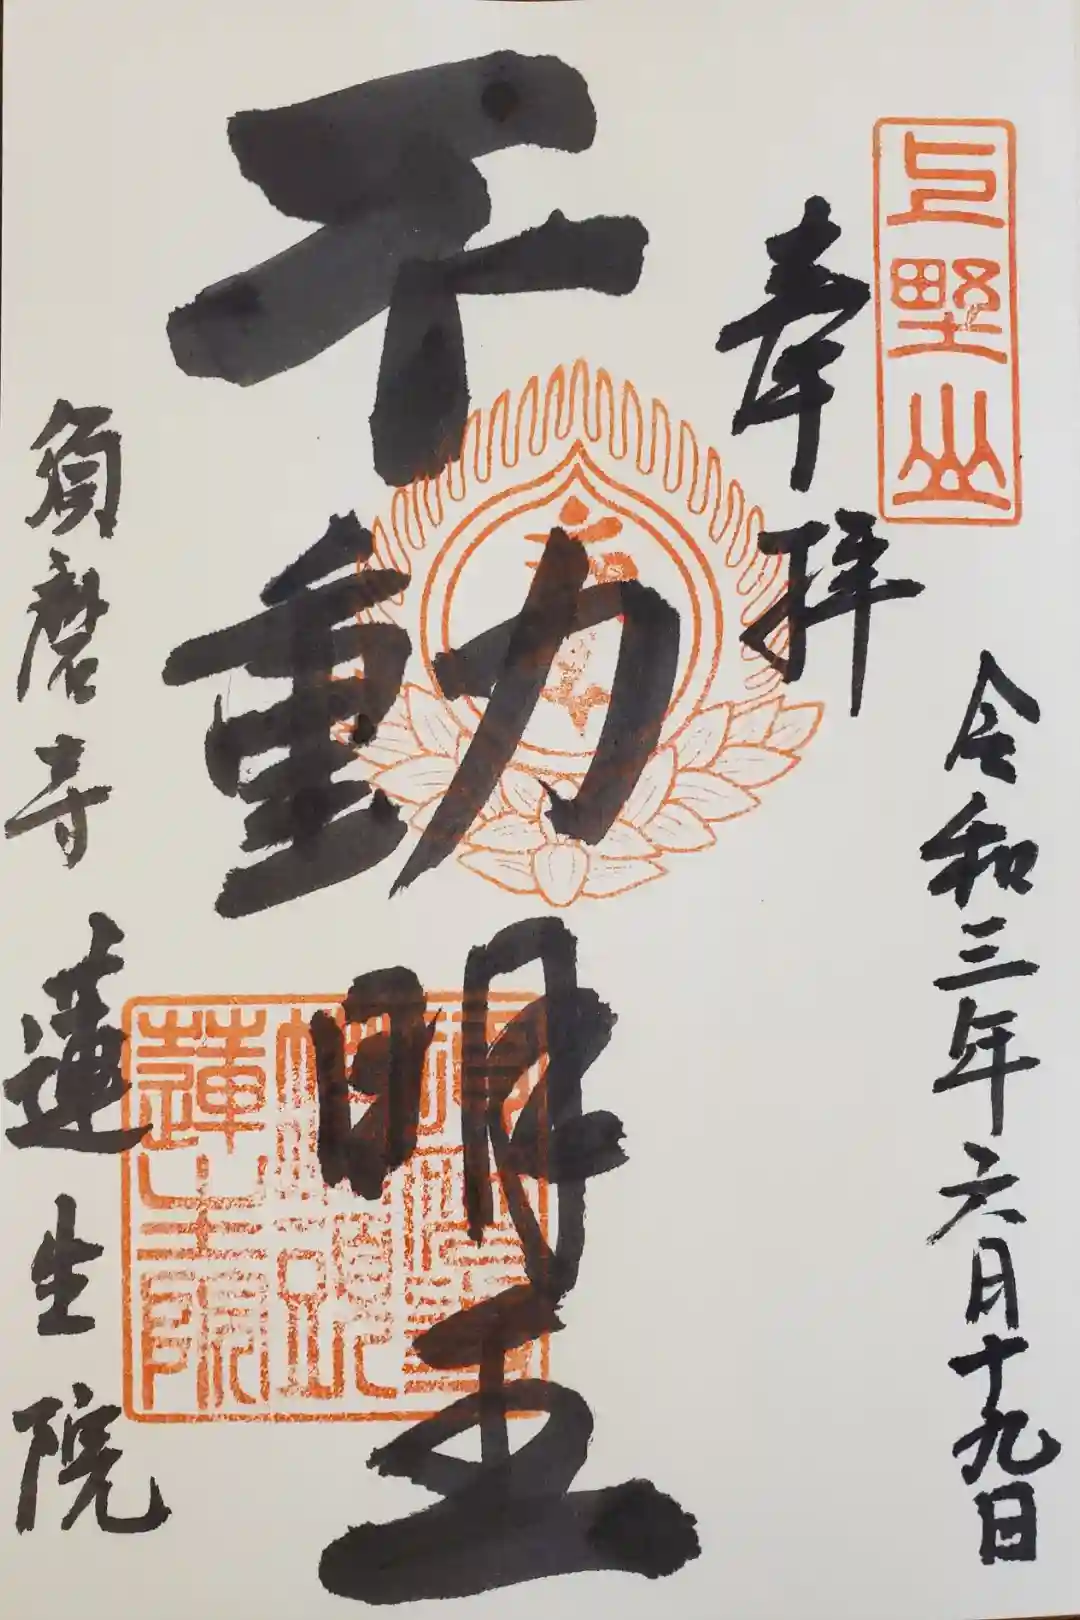 上野山
奉拝
令和三年六月十九日
不動明王
須磨寺 蓮生院